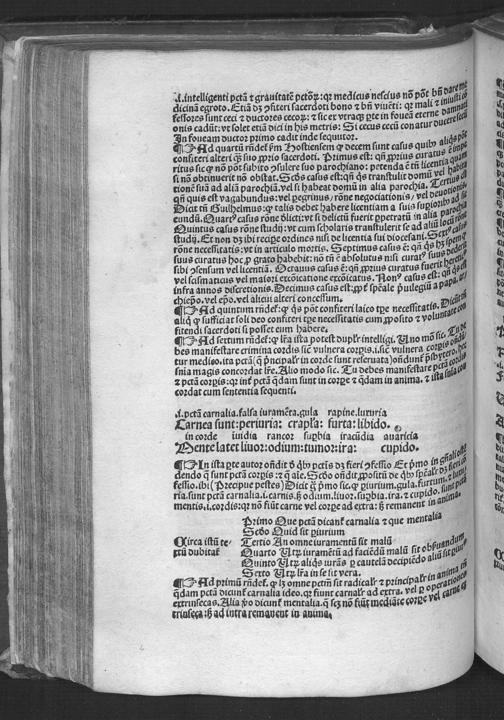 .i. intelligenti pctā ⁊ grauitatē pctoꝝ: qꝛ medicus nescius nō pōt bñ dare me
dicinā egroto. Etiā dꝫ ꝯfiteri sacerdoti bono ⁊ bñ viuēti: qꝛ mali ⁊ iniusti cō
fessores sunt ceci ⁊ ductores cecoꝝ: ⁊ sic ex vtraqꝫ pte in foueā eterne damnati
onis cadūt: vt solet etiā dici in his metris: Si cecus cecū conatur ducere secū
In foueam ductor primo cadit inde sequitor.
¶☞ Ad quartū rñdeꝛ ꝑm Hostiensem ꝙ decem sunt casus quibꝰ aliqͥs pōt
confiteri alteri ꝙ̄ suo ꝓprio sacerdoti. Primus est: qñ ꝓprius curatus ē impe
ritus sic ꝙ nō pōt subito ꝯsulere suo parochiano: petenda ē tñ licentia quam
si nō obtinuerit nō obstat. Scðs casus est: qñ qͥs transtulit domū vel habita
tionē suā ad aliā parochiā. vel si habeat domū in alia parochia. Tertius est
qñ quis est vagabundus: vel pegrinus, rōne negociationis, vel deuotionis.
Dicit tñ Guilhelmus: ꝙ talis debet habere licentiam a suis supioribꝰ ad sic
eundū. Quartꝰ casus rōne dlicti: vt si delictū fuerit ꝑpetratū in alia parochia
Quintus casus rōne studij: vt cum scholaris transtulerit se ad aliū locū rōne
studij. Et non dꝫ ibi recipe ordines nisi de licentia sui diocesani. Sextꝰ casus
rōne necessitatis: vt in articulo mortis. Septimus casus ē: qñ qͥs hꝫ spem ꝙ
suus curatus hoc ꝓ grato habebit: nō tñ ē absolutus nisi curatꝰ suus hoc
sibi ꝯsensum vel licentiā. Octauus casus ē: qñ ꝓprius curatus fuerit hereticꝰ
vel scismaticus vel maiori excōicatione excōicatus. Nonꝰ casus est: qñ qͥs est
infra annos discretionis. Decimus casus est: ꝓpt̄ spēale p̄uilegiū a papa. ar
chiepō. vel epō. vel alicui alteri concessum.
¶☞ Ad quintum rñdeꝛ: ꝙ qͥs pōt confiteri laico tꝑe necessitatis. Dicūt tñ
aliq̄ ꝙ sufficiat soli deo confiteri tꝑe necessitatis cum ꝓposito ⁊ voluntate con
fitendi sacerdoti si posset eum habere.
¶☞ Ad sextum rñdeꝛ: ꝙ lr̄a ista potest duplr̄ intelligi. Uno mō sic. Tu de
bes manifestare crimina cordis sic vulnera corpꝫis. i. sic vulnera corpis ondū
tur medico, ita pctā q̄ p̄ncipalr̄ in corde sunt reseruata) ondūnt̄ p̄sbytero, ⁊
snia magis concordat lr̄e. Alio modo sic. Tu debes manifestare pctā cordis
⁊ pctā corpis: qꝛ int̄ pctā q̄dam sunt in corpe ⁊ q̄dam in anima. ⁊ ista snia con
cordat cum sententia sequenti.
.i. pctā carnalia. falsa iuramēta. gula rapine. luxuria
Carnea sunt: periuria: crapl'a: furta: libido.
in corde inuidia rancor supbia iracūdia auaricia
Mente latet liuor: odium: tumor: ira: cupido.
¶☞ In ista pte autor oñdit ð qͥbꝰ pctis dꝫ fieri ꝯfessio Et p̄mo in gñali oñ
dendo q̄ sunt pctā corpis: ⁊ q̄ aīe. Scðo oñdit. ꝓpositū de qͥbꝰ spēalr̄ dꝫ fieri cō
fessio. ibi (Precipue pestes) Dicit gͦ p̄mo sic. ꝙ piurium. gula. furtum. ⁊ luxu
ria. sunt pctā carnalia. i. carnis. hꝫ odium. liuor. supbia. ira ⁊ cupido. sunt pctā
mentis. i. cordis: qꝛ nō fiūt carne vel corpe ad extra: hꝫ remanent in anima.
Primo Que pctā dicant̄ carnalia ⁊ que mentalia
Scðo Quid sit piurium
Circa istū te- Tertio An omne iuramentū sit malū
xtū dubitat̄ Quarto Utrꝫ iuramētū ad faciēdū malū sit obseruandum
Quinto Utrꝫ aliqͥs iurās ꝑ cautelā decipiēdo aliū sit piurꝰ
Sexto Utrꝫ lr̄a in se sit vera.
¶☞ Ad primū rñdeꝛ. ꝙ lꝫ omne pctm̄ sit radicalr̄ ⁊ principalr̄ in anima tñ
q̄dam pctā dicunt̄ carnalia ideo. qꝛ fiunt carnalr̄ ad extra. vel ꝑ operationes
extrinsecas. Alia p̄o dicunt̄ mentalia. q̄ scꝫ nō fiūt mediāte corpe vel carne ex
trinseca: hꝫ ad intra remanent in anima.